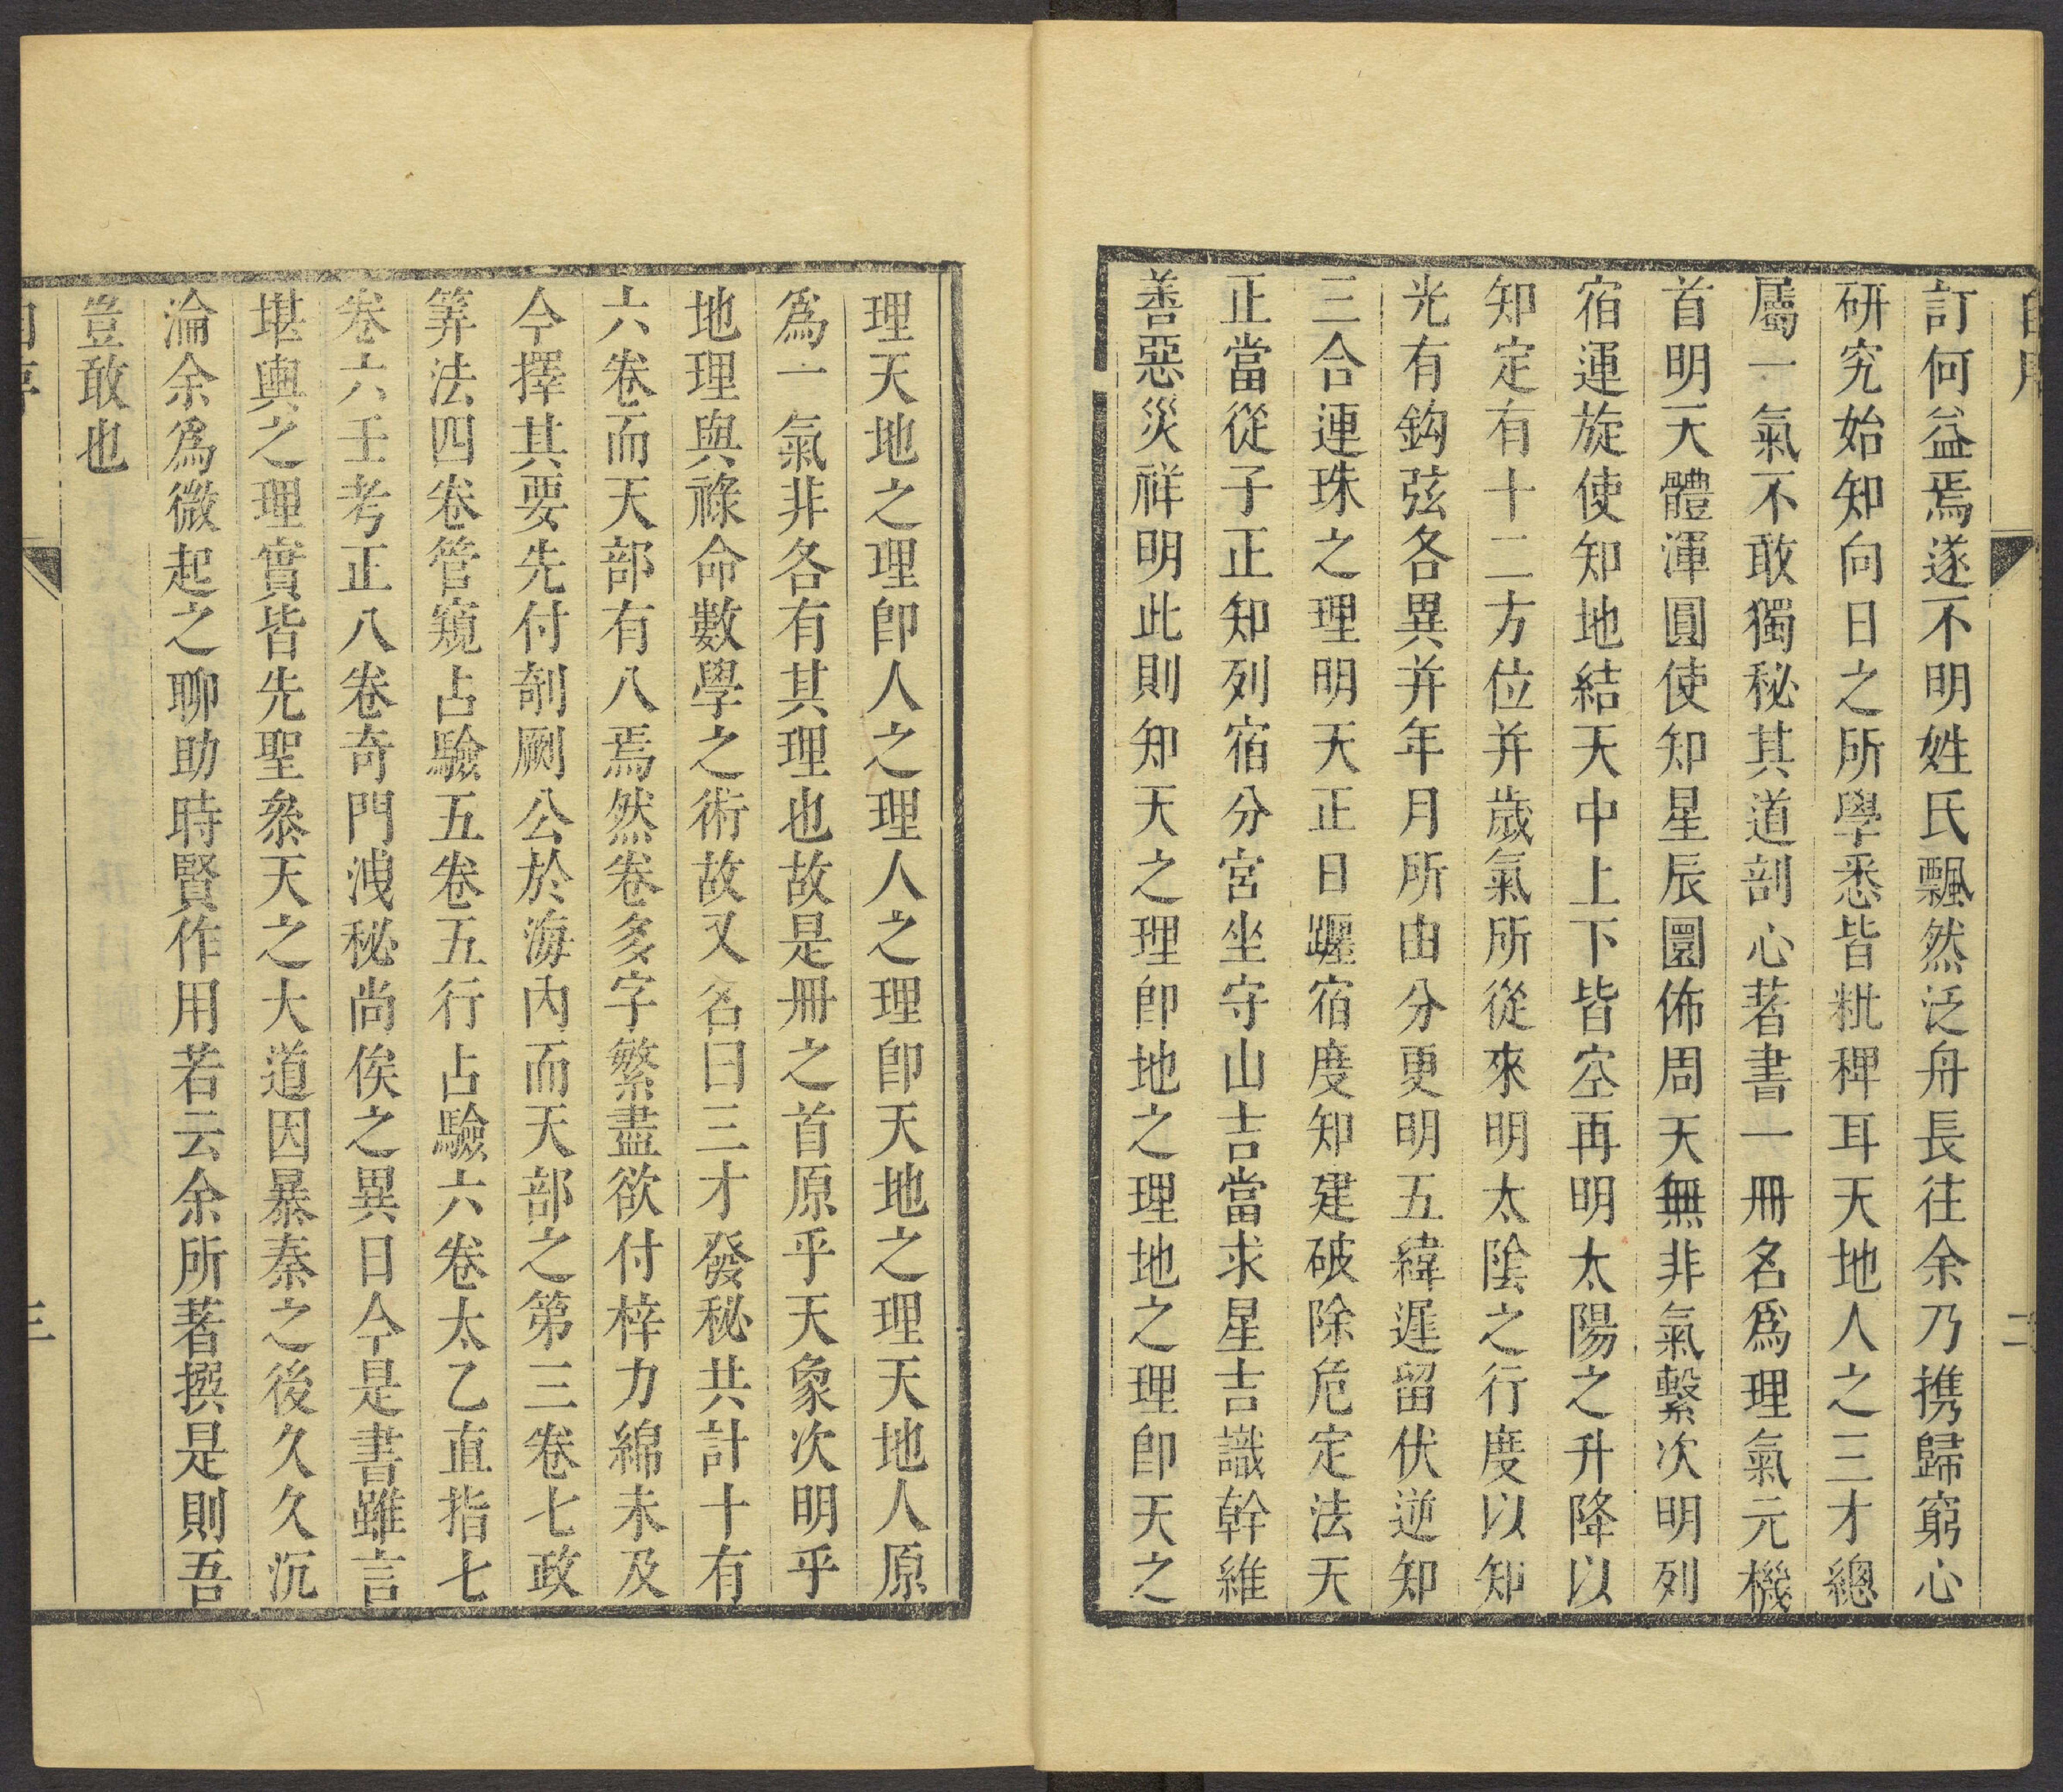 自序
二
訂何益焉遂不明姓氏飄然泛舟長往余乃携歸窮心
研究始知向日之所學悉皆粃稗耳天地人之三才總
屬一氣不敢獨秘其道剖心著書一冊名爲理氣元機
首明天體渾圓使知星辰圜佈周天無非氣繫次明列
宿運旋使知地結天中上下皆空再明太陽之升降以
知定有十二方位并歲氣所從來明太陰之行度以知
光有鈎弦各異并年月所由分更明五緯遲留伏逆知
三合連珠之理明天正日躔宿度知建破除危定法天
正當從子正知列宿分宮坐守山吉當求星吉識幹維
善惡災祥明此則知天之理卽地之理地之理卽天之
理天地之理卽人之理人之理卽天地之理天地人原
爲一氣非各有其理也故是冊之首原乎天象次明乎
地理與祿命數學之術故又名曰三才發秘共計十有
六卷而天部有八焉然卷多字繁盡欲付梓力綿未及
今擇其要先付剞劂公於海內而天部之第三卷七政
筭法四卷管窺占驗五卷五行占驗六卷太乙直指七
卷六壬考正八卷奇門洩秘尚俟之異日今是書雖言
堪輿之理實皆先聖叅天之大道因暴秦之後久久沉
淪余爲微起之聊助時賢作用若云余所著撰是則吾
豈敢也
自序
三